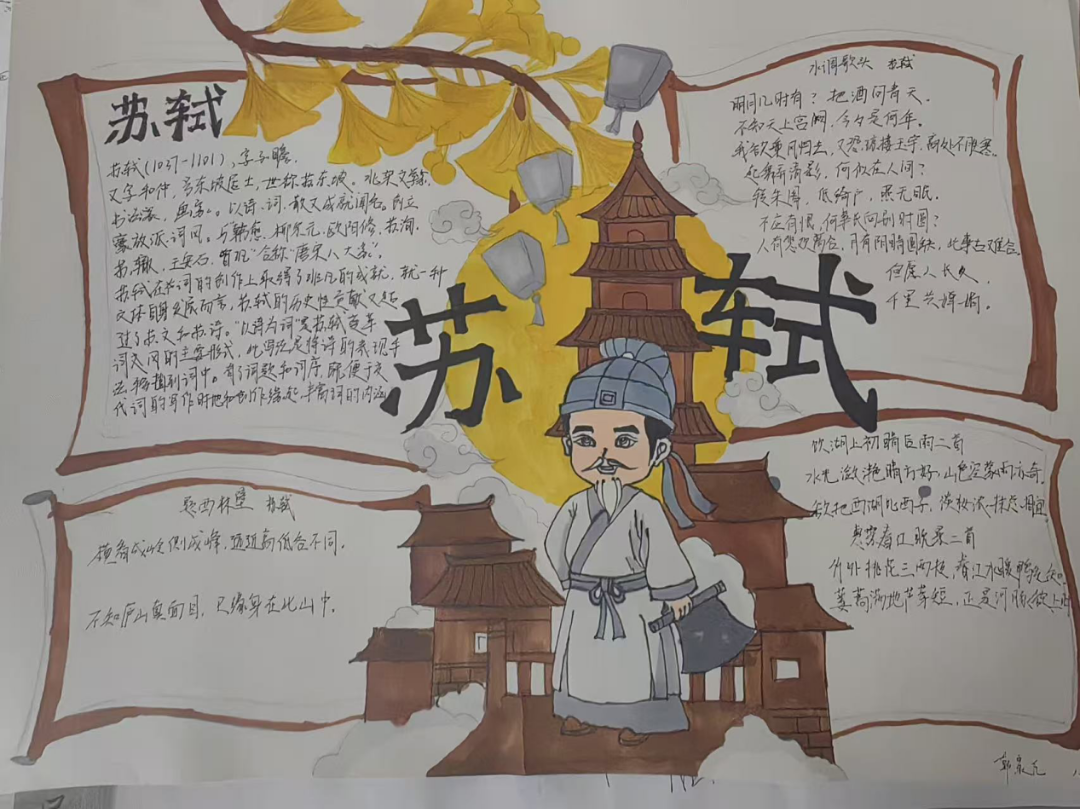 苏轼
苏轼(1037-1101),字子瞻,
又字和仲,号东坡居士,世称苏东坡。北宋文豪,
书法家,画家。以诗、词、散文成就闻名。创立
豪放派词风。与韩愈,柳宗元,欧阳修,苏洵,
苏辙,王安石,曾巩合称"唐宋八大家"。
苏轼在苏词的创作上取得了非凡的成就,就一种
文体自身发展而言,苏轼的历史性贡献又超
过了苏文和苏诗。"以诗为词"是苏轼变革
词文风的主要形式,此手法是将诗的表现手
法移植到词中。有了词题和词序,既便于交
代词的写作时地和创作缘起,丰富词的内涵
苏轼
水调歌头 苏轼
明月几时有?把酒问青天。
不知天上宫阙,今夕是何年。
我欲乘风归去,又恐琼楼玉宇,高处不胜寒。
起舞弄清影,何似在人间?
转朱阁,低绮户,照无眠。
不应有恨,何事长向别时圆?
人有悲欢离合,月有阴晴圆缺,此事古难全。
但愿人长久,
千里共婵娟。
题西林壁 苏轼
横看成岭侧成峰,远近高低各不同。
不知庐山真面目,只缘身在此山中。
饮湖上初晴后雨二首
水光潋滟晴方好,山色空蒙雨亦奇。
欲把西湖比西子,淡妆浓抹总相宜。
惠崇春江晚景二首
竹外桃花三两枝,春江水暖鸭先知。
蒌蒿满地芦芽短,正是河豚欲上时